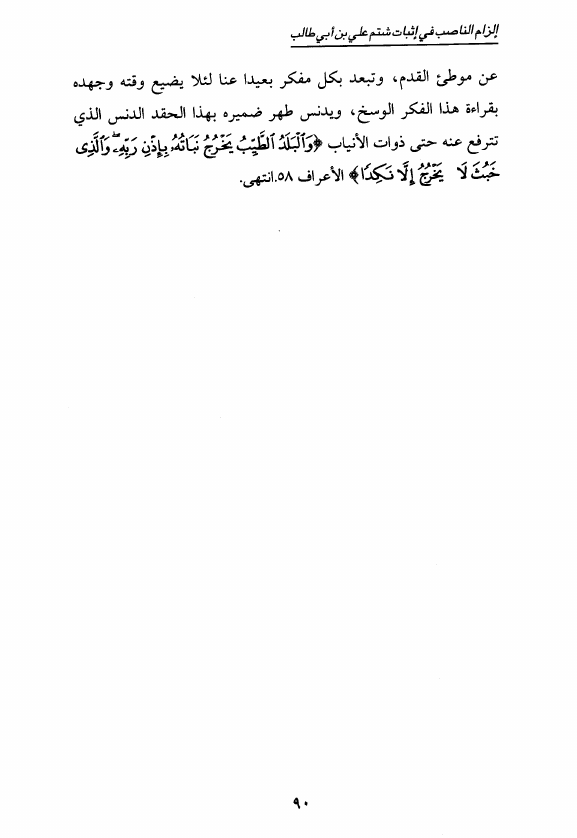 إلزام الناصب في إثبات شتم علي بن أبي طالب
عن موطئ القدم، وتبعد بكل مفكر بعيدا عنا لئلا يضيع وقته وجهده
بقراءة هذا الفكر الوسخ، ويدنس طهر ضميره بهذا الحقد الدنس الذي
تترفع عنه حتى ذوات الأنياب ﴿وَٱلْبَلَدُ ٱلطَّيِّبُ يَخْرُجُ نَبَاتُهُۥ بِإِذْنِ رَبِّهِۦ ۖ وَٱلَّذِى
خَبُثَ لَا يَخْرُجُ إِلَّا نَكِدًا﴾ الأعراف ٥٨.انتهى.
٩٠